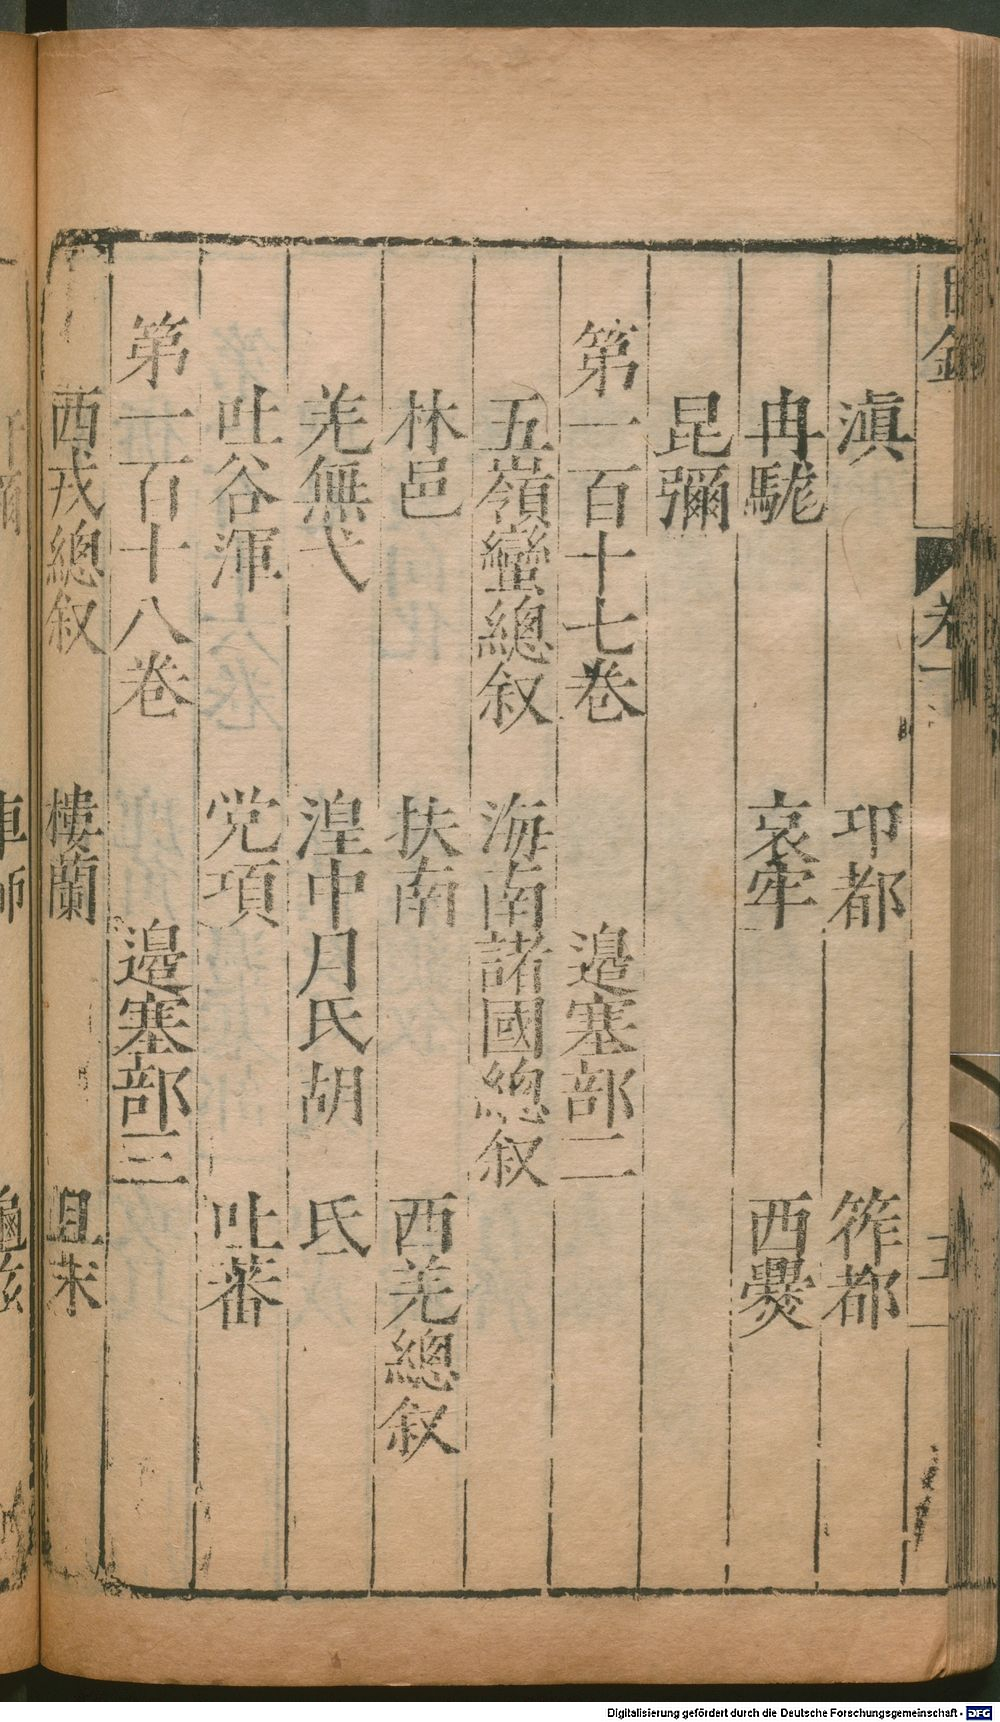 目錄 卷一
滇 邛都 筰都
冉駹 哀牢 西爨
昆彌
第一百十七卷 邉塞部二
五嶺蠻總叙 海南諸國總叙
林邑 扶南 西羌總叙
羌無弋 湟中月氏胡 氐
吐谷渾 党項 吐蕃
第一百十八卷 邉塞部三
西戎總叙 樓蘭 且末
車師 龜兹
Digitalisierung gefördert durch die Deutsche Forschungsgemeinschaft - DFG